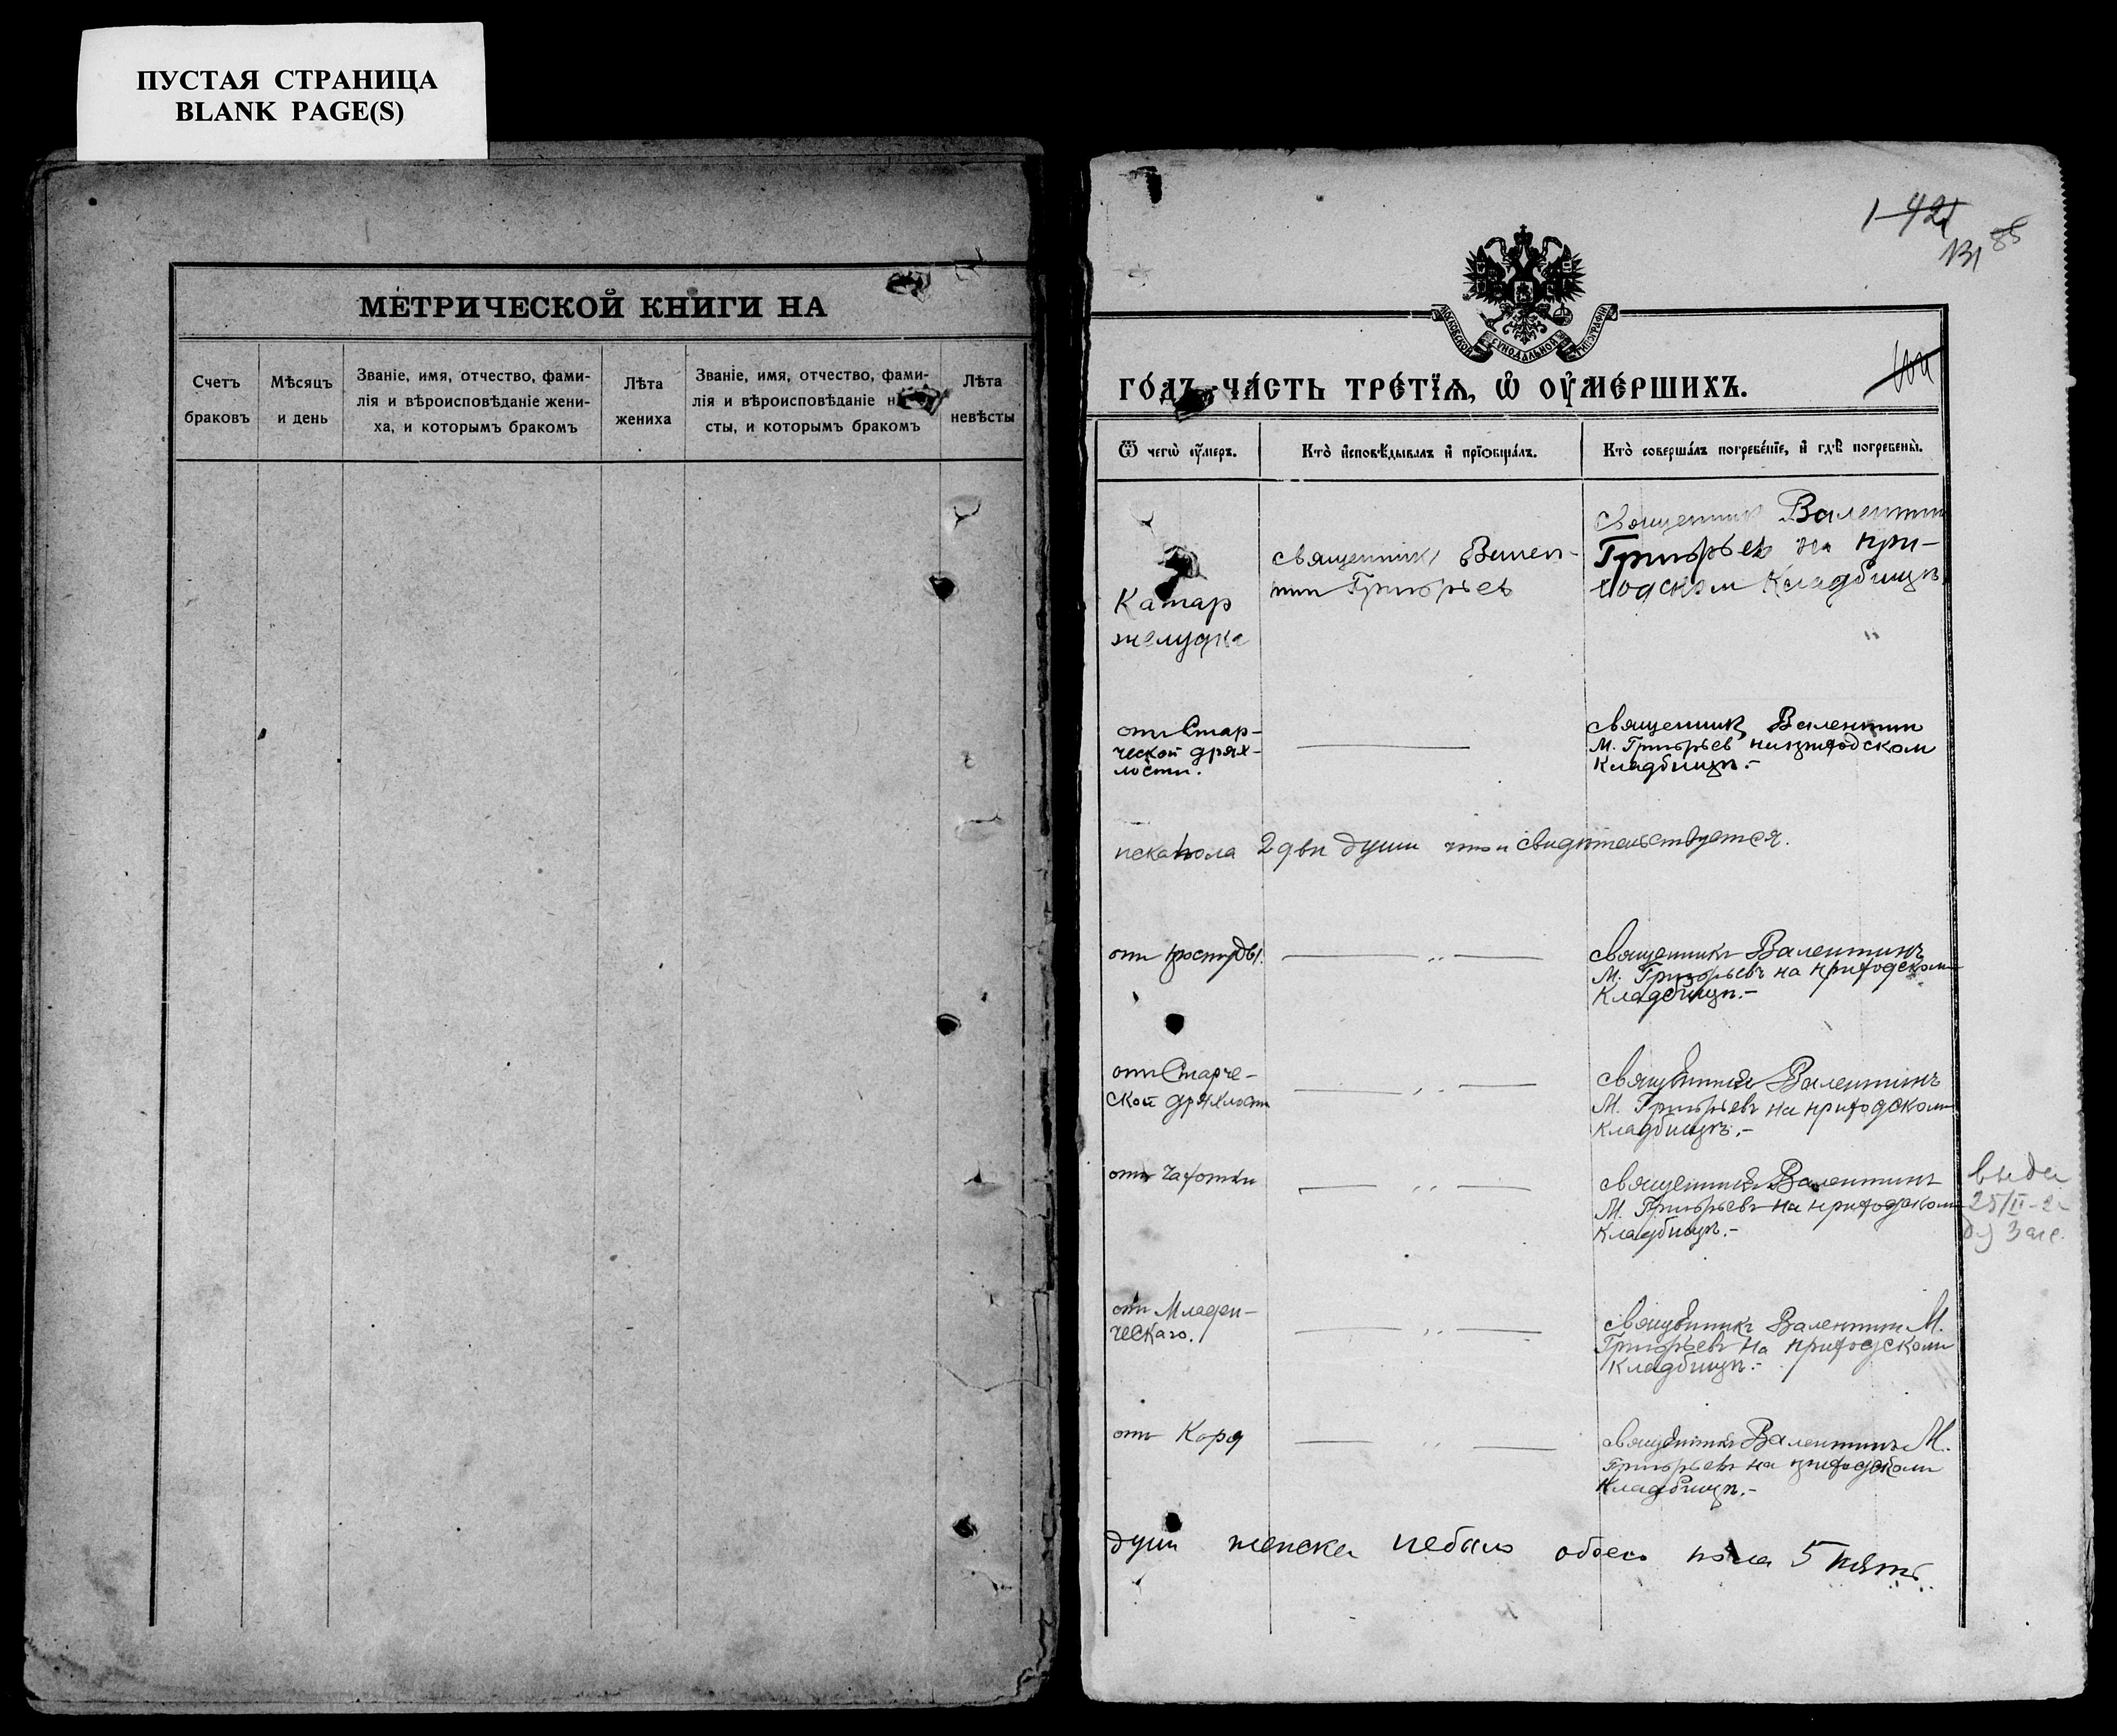 ПУСТАЯ СТРАНИЦА
BLANK PAGE(S)
МЕТРИЧЕСКОЙ КНИГИ НА
Счетъ
браковъ
Мѣсяцъ
и день
Званіе, имя, отчество, фами-
лія и вѣроисповѣданіе жени-
ха, и которымъ бракомъ
Лѣта
жениха
Званіе, имя, отчество, фами-
лія и вѣроисповѣданіе
сты, и которымъ бракомъ
Лѣта
невѣсты
131 85
МОСКОВСКОЙ СѴНОДАЛЬНОЙ ТИПОГРАФІИ
ГО́ДЪ, ЧА́СТЬ ТРЕ́ТЇѦ, Ѡ҆ ОУ҆МЕ́РШИХЪ.
Ѿ чегѡ̀ оу҆́меръ.
Кто̀ и҆сповѣ́дывалъ и҆ прїѡбща́лъ.
Кто̀ соверша́лъ погребе́нїе, и҆ гдѣ̀ погребены̀.
Катар
желудка
священник Вален-
тин Григорьев
священник Валентин
Григорьев на при-
ходском Кладбищѣ
от Стар-
ческой дрях-
лости.
священник Валентин
М. Григорьев на приходском
Кладбищѣ.-
пола 2 двѣ души что и свидѣтельствуется.
от простуды.
священникъ Валентинъ
М. Григорьевъ на приходском
Кладбищѣ.-
от Старче-
ской дряхлости
священникъ Валентинъ
М. Григорьевъ на приходском
Кладбищѣ.-
отъ Чахотки
священникъ Валентинъ
М. Григорьевъ на приходском
Кладбищѣ.-
25/II-2
от Младен-
ческаго.
священникъ Валентин М.
Григорьевъ на приходском
Кладбищѣ.-
отъ Коря
священникъ Валентинъ М.
Григорьевъ на приходском
Кладбищѣ.-
душ женска небыло обоего пола 5 пять.